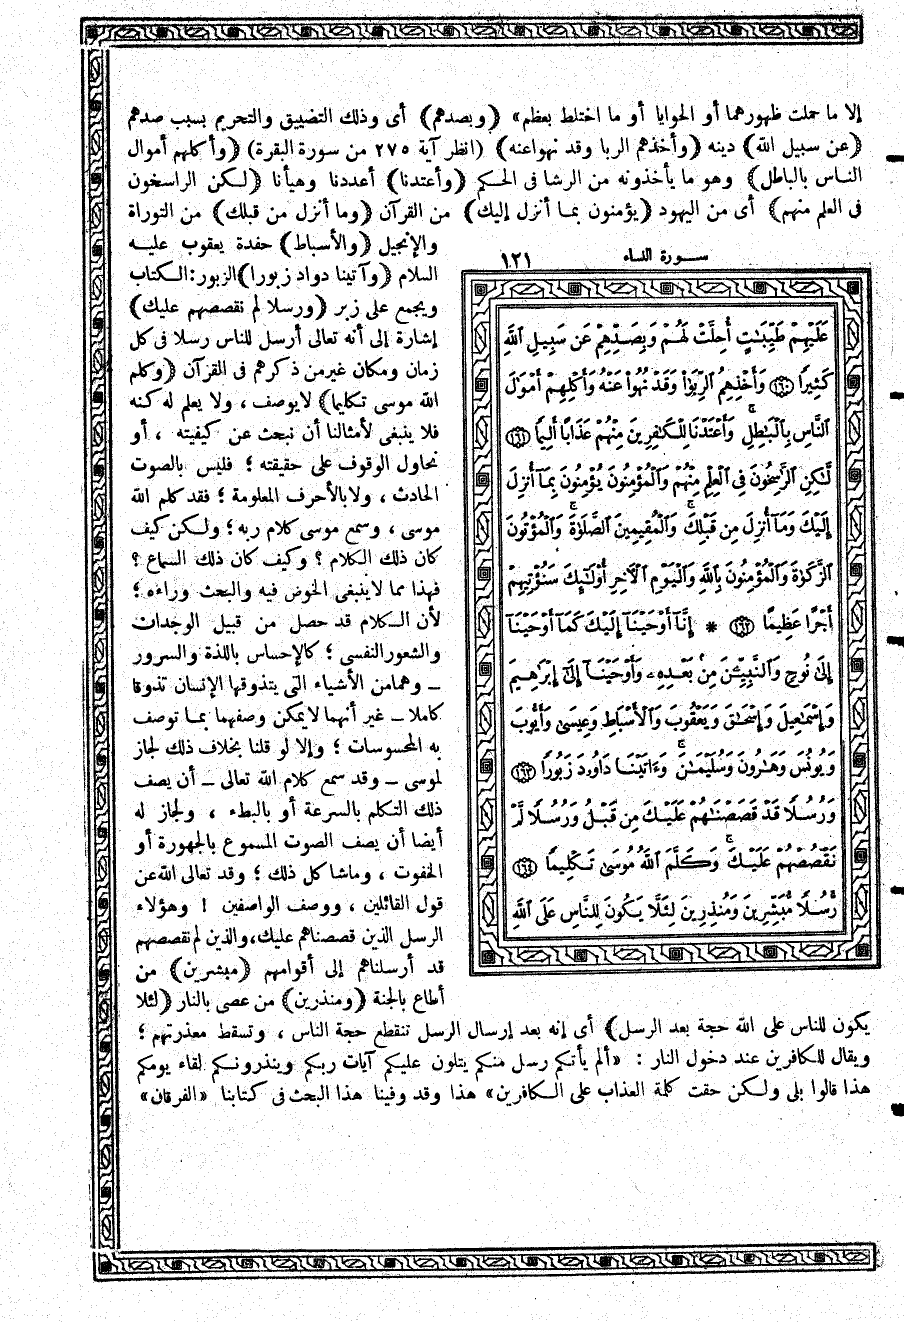 إلا ما حملت ظهورهما أو الحوايا أو ما اختلط بعظم» (وبصدهم) أى وذلك التضييق والتحريم بسبب صدهم
(عن سبيل الله) دينه (وأخذهم الربا وقد نهوا عنه) (انظر آية ٢٧٥ من سورة البقرة) (وأكلهم أموال
الناس بالباطل) وهو ما يأخذونه من الرشا فى الحكم (وأعتدنا) أعددنا وهيأنا (لكن الراسخون
فى العلم منهم) أى من اليهود (يؤمنون بما أنزل إليك) من القرآن (وما أنزل من قبلك) من التوراة
والإنجيل (والأسباط) حفدة يعقوب عليه
السلام (وآتينا دواد زبورا) الزبور: الكتاب
ويجمع على زبر (ورسلا لم نقصصهم عليك)
إشارة إلى أنه تعالى أرسل للناس رسلا فى كل
زمان ومكان غير من ذكرهم فى القرآن (وكلم
الله موسى تكليما) لا يوصف، ولا يعلم له كنه
فلا ينبغى لأمثالنا أن نبحث عن كيفيته، أو
نحاول الوقوف على حقيقته؛ فليس بالصوت
الحادث، ولا بالأحرف المعلومة؛ فقد كلم الله
موسى، وسمع موسى كلام ربه؛ ولكن كيف
كان ذلك الكلام؟ وكيف كان ذلك السماع؟
فهذا مما لا ينبغى الخوض فيه والبحث وراءه؛
لأن الكلام قد حصل من قبيل الوجدات
والشعور النفسى؛ كالإحساس باللذة والسرور
ــ وهما من الأشياء التى يتذوقها الإنسان تذوقا
كاملا ــ غير أنهما لا يمكن وصفهما بما توصف
به المحسوسات؛ وإلا لو قلنا بخلاف ذلك لجاز
لموسى ــ وقد سمع كلام الله تعالى ــ أن يصف
ذلك التكلم بالسرعة أو بالبطء، ولجاز له
أيضا أن يصف الصوت المسموع بالجهورة أو
الخفوت، وماشا كل ذلك؛ وقد تعالى الله عن
قول القائلين، ووصف الواصفين! وهؤلاء
الرسل الذين قصصناهم عليك، والذين لم نقصصهم
قد أرسلناهم إلى أقوامهم (مبشرين) من
أطاع بالجنة (ومنذرين) من عصى بالنار (لئلا
يكون للناس على الله حجة بعد الرسل) أى إنه بعد إرسال الرسل تنقطع حجة الناس، وتسقط معذرتهم؛
ويقال للكافرين عند دخول النار: «ألم يأتكم رسل منكم يتلون عليكم آيات ربكم وينذرونكم لقاء يومكم
هذا قالوا بلى ولكن حقت كلمة العذاب على الكافرين» هذا وقد وفينا هذا البحث فى كتابنا «الفرقان»
سورة النساء ١٢١
عَلَيْهِمْ طَيِّبَٰتٍ أُحِلَّتْ لَهُمْ وَبِصَدِّهِمْ عَن سَبِيلِ ٱللَّهِ
كَثِيرًا ۝١٦٠ وَأَخْذِهِمُ ٱلرِّبَوٰا۟ وَقَدْ نُهُوا۟ عَنْهُ وَأَكْلِهِمْ أَمْوَٰلَ
ٱلنَّاسِ بِٱلْبَٰطِلِ ۚ وَأَعْتَدْنَا لِلْكَٰفِرِينَ مِنْهُمْ عَذَابًا أَلِيمًا ۝١٦١
لَّٰكِنِ ٱلرَّٰسِخُونَ فِى ٱلْعِلْمِ مِنْهُمْ وَٱلْمُؤْمِنُونَ يُؤْمِنُونَ بِمَآ أُنزِلَ
إِلَيْكَ وَمَآ أُنزِلَ مِن قَبْلِكَ ۚ وَٱلْمُقِيمِينَ ٱلصَّلَوٰةَ ۚ وَٱلْمُؤْتُونَ
ٱلزَّكَوٰةَ وَٱلْمُؤْمِنُونَ بِٱللَّهِ وَٱلْيَوْمِ ٱلْءَاخِرِ أُو۟لَٰٓئِكَ سَنُؤْتِيهِمْ
أَجْرًا عَظِيمًا ۝١٦٢ * إِنَّآ أَوْحَيْنَآ إِلَيْكَ كَمَآ أَوْحَيْنَآ
إِلَىٰ نُوحٍ وَٱلنَّبِيِّۦنَ مِنۢ بَعْدِهِۦ ۚ وَأَوْحَيْنَآ إِلَىٰٓ إِبْرَٰهِيمَ
وَإِسْمَٰعِيلَ وَإِسْحَٰقَ وَيَعْقُوبَ وَٱلْأَسْبَاطِ وَعِيسَىٰ وَأَيُّوبَ
وَيُونُسَ وَهَٰرُونَ وَسُلَيْمَٰنَ ۚ وَءَاتَيْنَا دَاوُۥدَ زَبُورًا ۝١٦٣
وَرُسُلًا قَدْ قَصَصْنَٰهُمْ عَلَيْكَ مِن قَبْلُ وَرُسُلًا لَّمْ
نَقْصُصْهُمْ عَلَيْكَ ۚ وَكَلَّمَ ٱللَّهُ مُوسَىٰ تَكْلِيمًا ۝١٦٤
رُّسُلًا مُّبَشِّرِينَ وَمُنذِرِينَ لِئَلَّا يَكُونَ لِلنَّاسِ عَلَى ٱللَّهِ